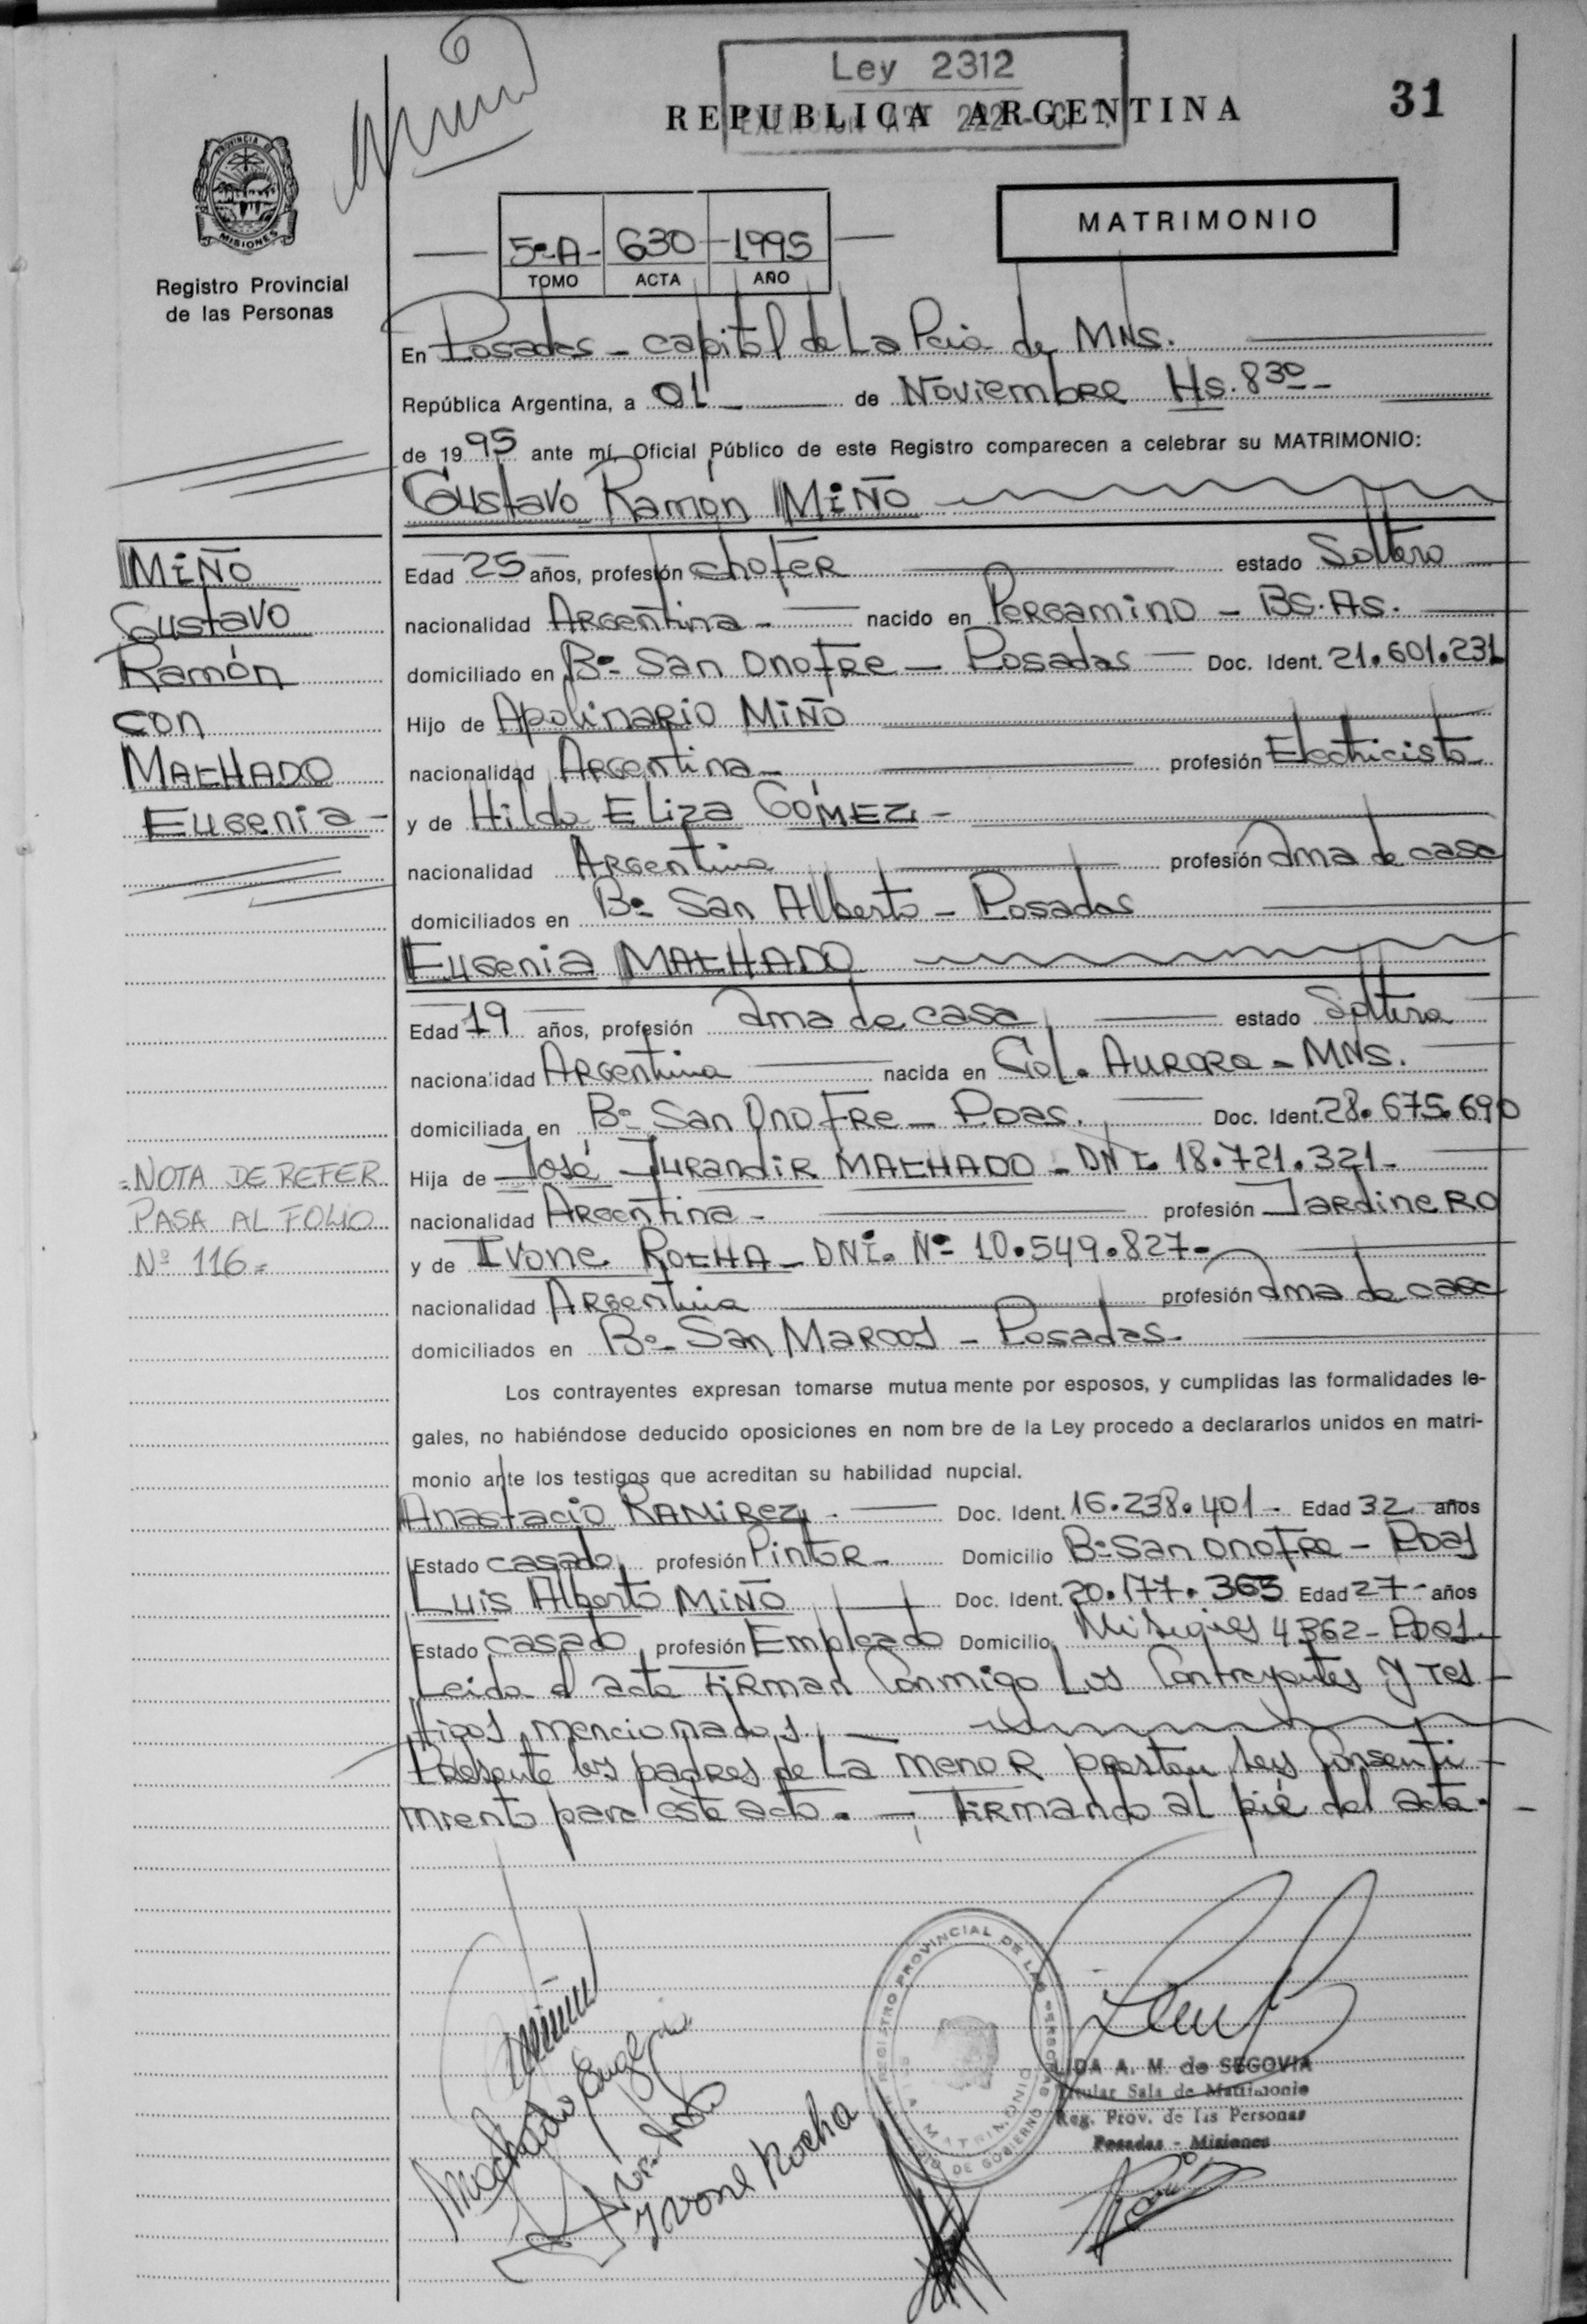 Ley 2312
REPUBLICA ARGENTINA
31
PROVINCIA DE
MISIONES
Registro Provincial
de las Personas
MATRIMONIO
5º-A- 630 -1995
TOMO ACTA AÑO
En Posadas - capital de La Pcia de MNS.
República Argentina, a 01 de Noviembre Hs. 8 30 -
de 1995 ante mí, Oficial Público de este Registro comparecen a celebrar su MATRIMONIO:
Gustavo Ramón MIÑO
Edad 25 años, profesión chofer estado Soltero
nacionalidad Argentina - nacido en Pergamino - BS. AS.
domiciliado en Bº San Onofre - Posadas Doc. Ident. 21.601.231
Hijo de Apolinario MIÑO
nacionalidad Argentina - profesión Electricista
y de Hilda Eliza GÓMEZ -
nacionalidad Argentina profesión Ama de casa
domiciliados en Bº San Alberto - Posadas
Eugenia MACHADO
Edad 19 años, profesión Ama de casa estado Soltera
nacionalidad Argentina nacida en Col. Aurora - MNS.
domiciliada en Bº San Onofre - Pdas. Doc. Ident. 28.675.690
Hija de José Jurandir MACHADO - DNI. 18.721.321 -
nacionalidad Argentina - profesión Jardinero
y de Ivone ROCHA - DNI. Nº 10.549.827 -
nacionalidad Argentina profesión Ama de casa
domiciliados en Bº San Marcos - Posadas -
Los contrayentes expresan tomarse mutua mente por esposos, y cumplidas las formalidades le-
gales, no habiéndose deducido oposiciones en nom bre de la Ley procedo a declararlos unidos en matri-
monio ante los testigos que acreditan su habilidad nupcial.
Anastacio RAMIREZ - Doc. Ident. 16.238.401 - Edad 32 años
Estado casado profesión Pintor - Domicilio Bº San Onofre - Pdas
Luis Alberto MIÑO Doc. Ident. 20.177.363 Edad 27 - años
Estado casado profesión Empleado Domicilio 4362 - Pdas.
Leida el acta firman Conmigo Los Contrayentes y tes -
tigos mencionados. -
Presente los padres de La menor prestan su Consenti -
miento para este acto. - Firmando al pié del acta. -
MIÑO
Gustavo
Ramón
con
MACHADO
Eugenia -
= NOTA DE REFER
PASA AL FOLIO
Nº 116 =
Machado Eugenia
Ivone Rocha
REGISTRO PROVINCIAL DE LAS PERSONAS
MATRIMONIO
DE GOBIERNO
LIDA A. M. de SEGOVIA
Titular Sala de Matrimonio
Reg. Prov. de las Personas
Posadas - Misiones